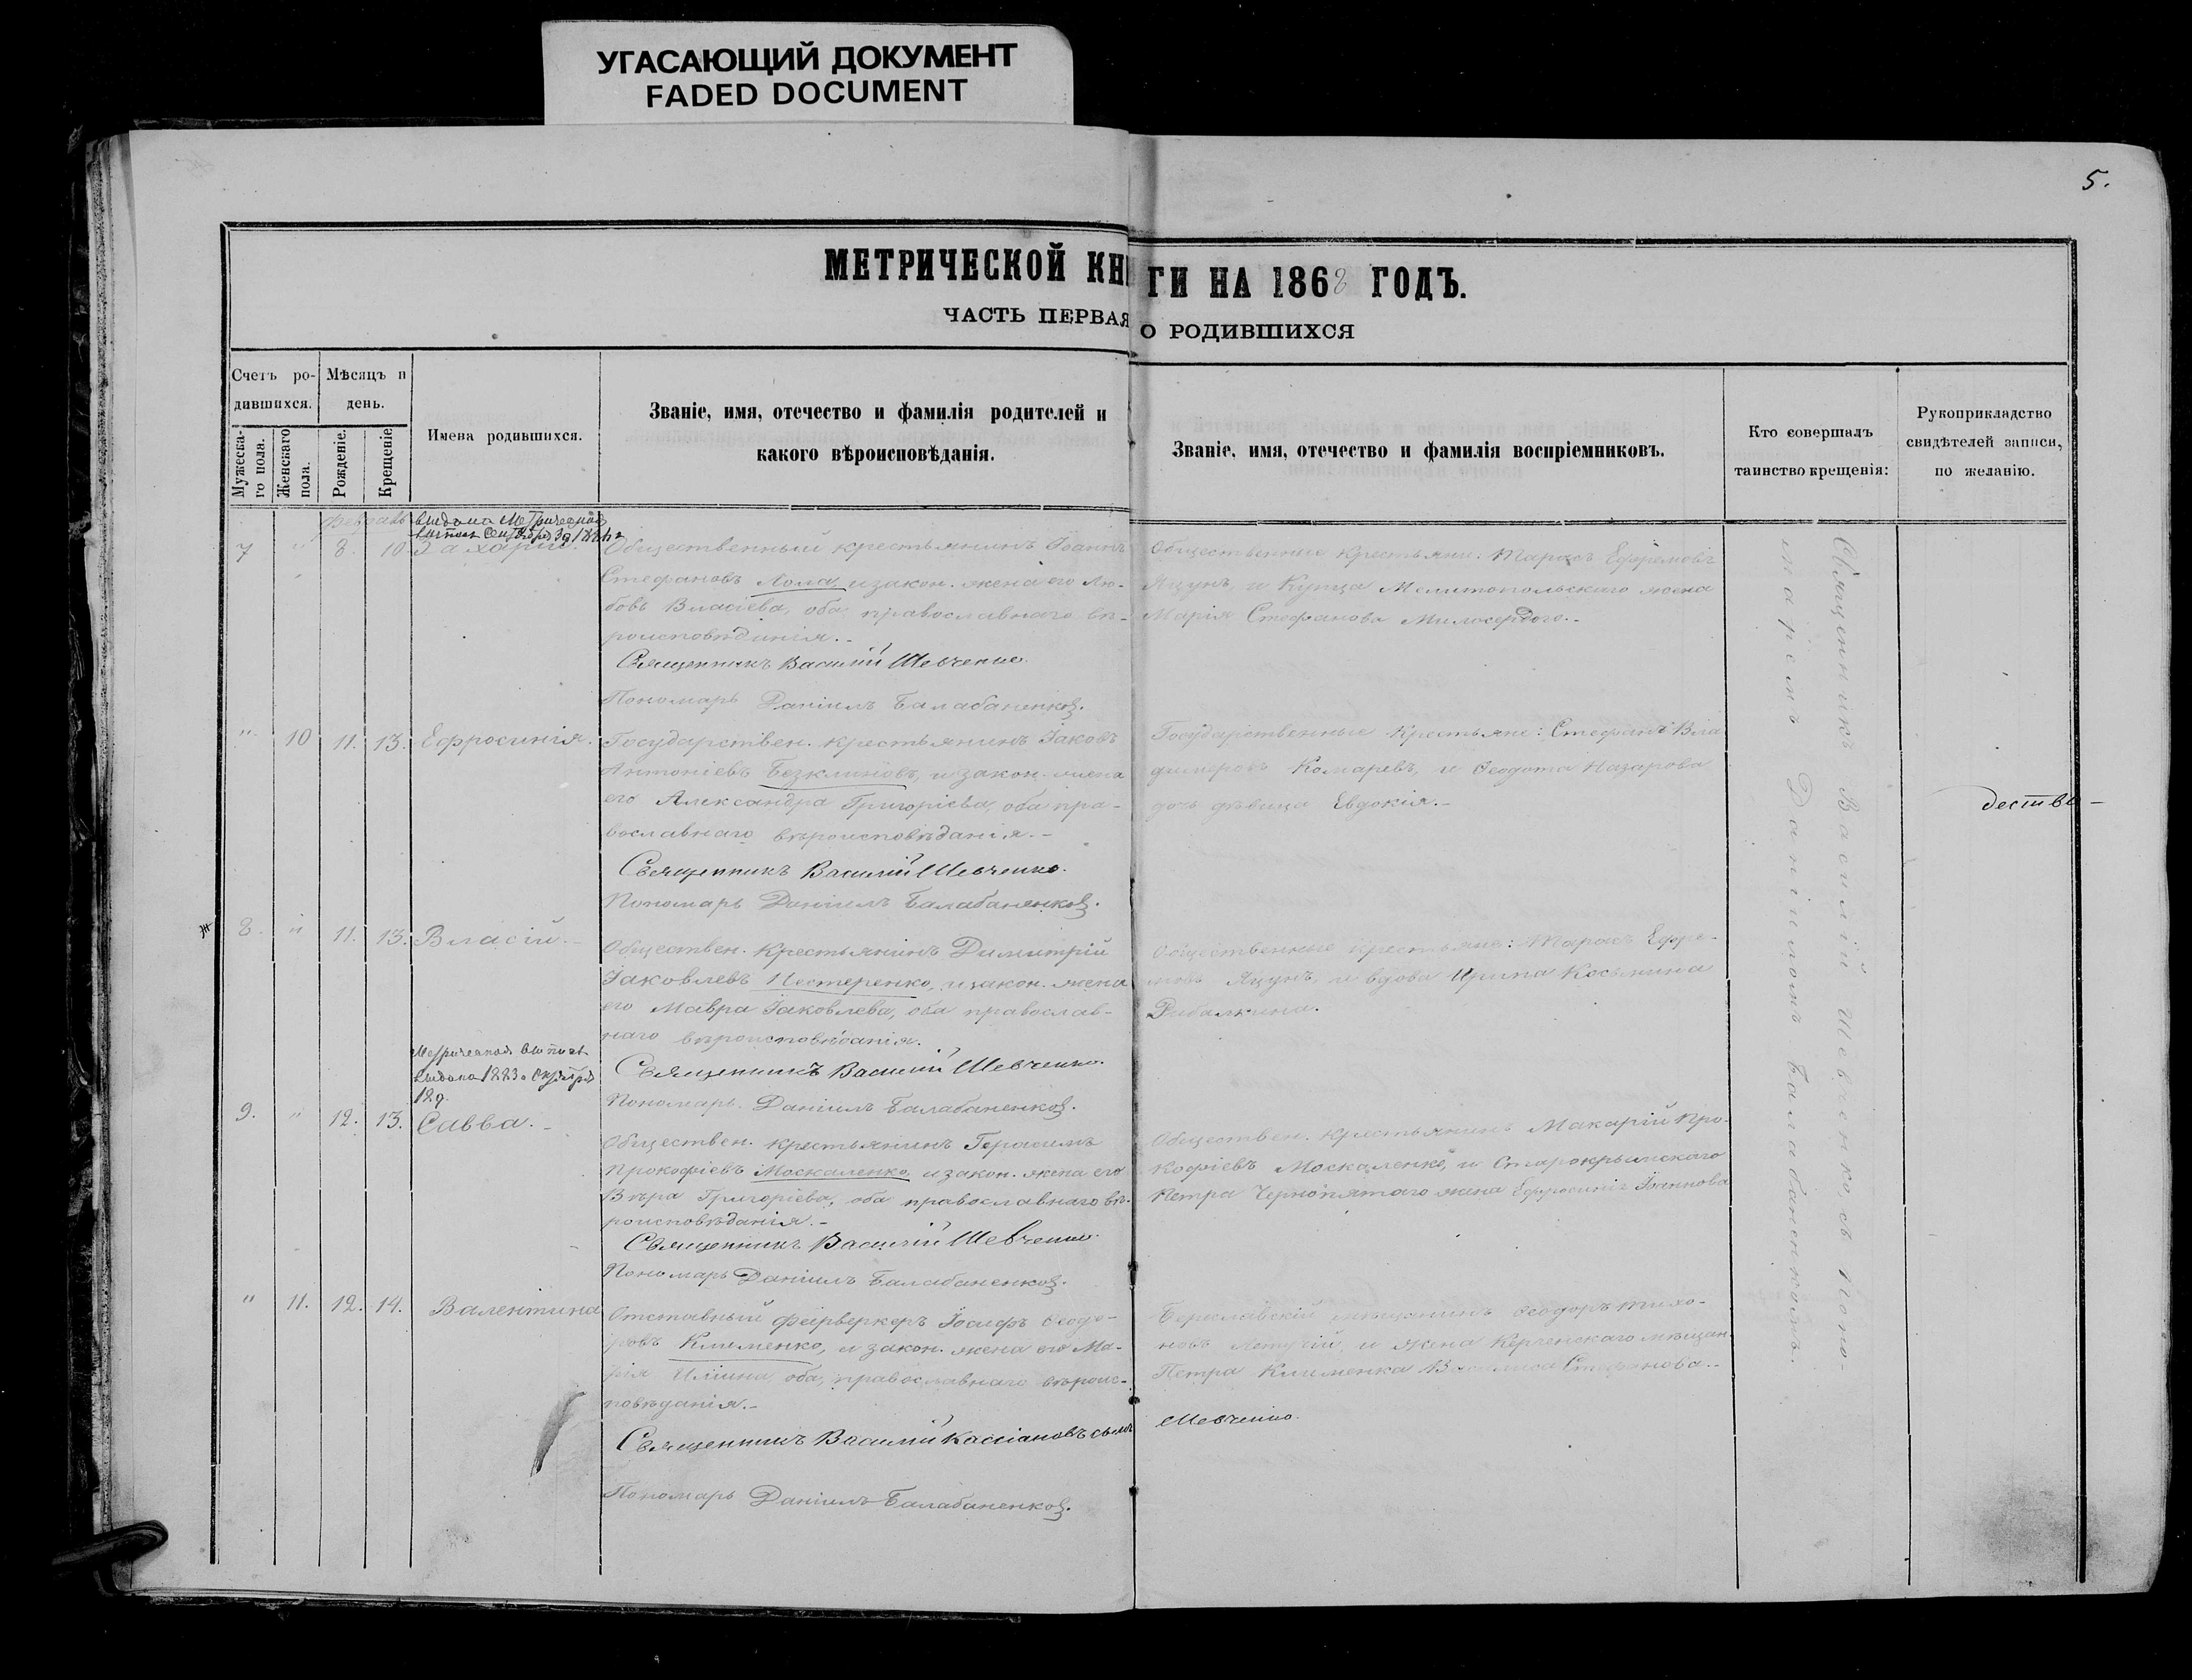 УГАСАЮЩИЙ ДОКУМЕНТ
FADED DOCUMENT
5.
МЕТРИЧЕСКОЙ КНИГИ НА 1868 ГОДЪ.
ЧАСТЬ ПЕРВАЯ О РОДИВШИХСЯ
Счетъ ро-
дившихся.
Мужеска-
го пола.
Женскаго
пола.
Мѣсяцъ и
день.
Рожденіе.
Крещеніе.
Имена родившихся.
Званіе, имя, отечество и фамилія родителей и
какого вѣроисповѣданія.
Званіе, имя, отечество и фамилія воспріемниковъ.
Кто совершалъ
таинство крещенія:
Рукоприкладство
свидѣтелей записи,
по желанію.
февраль
выдана Метрической
7 " 8. 10 Захарій.
Общественный крестьянинъ Іоаннъ
Стефановъ Лола, и закон. жена его Лю-
бовь Власіева, оба православнаго вѣ-
роисповѣданія.-
Священникъ Василій Шевченко.
Пономарь Даніилъ Балабаненковъ.
Общественные крестьяне: Тарасъ Ефремовъ
Яцунъ, и Купца Мелитопольскаго жена
Марія Стефанова Милосердого.-
" 10 11. 13. Ефросинія.
Государствен. крестьянинъ Іаковъ
Антоніевъ Безклиновъ, и закон. жена
его Александра Григоріева, оба пра-
вославнаго вѣроисповѣданія.-
Священникъ Василій Шевченко.
Пономарь Даніилъ Балабаненковъ.
Государственные Крестьяне: Стефанъ Вла
димеровъ Комаревъ, и Ѳеодота Назарова
дочь дѣвица Евдокія.-
дество-
8. " 11. 13. Власій.-
Обществен. крестьянинъ Димитрій
Іаковлевъ Нестеренко, и закон. жена
его Мавра Іаковлева, оба православ-
наго вѣроисповѣданія.
Священникъ Василій Шевченко.
Пономарь Даніилъ Балабаненковъ.
Общественные крестьяне: Тарасъ Ефре-
мовъ Яцунъ, и вдова Ирина Косьмина
Рибалкина.
Метрическая выпись
выдана 1883 г Октября
12 д.
9. " 12. 13. Савва.-
Обществен. крестьянинъ Герасимъ
Прокофіевъ Москаленко, и закон. жена его
Вѣра Григоріева, оба православнаго вѣ-
роисповѣданія.-
Священникъ Василій Шевченко.
Пономарь Даніилъ Балабаненковъ.
Обществен. крестьянинъ Макарій Про-
кофіевъ Москаленко, и Старокрымскаго
Петра Чернопятаго жена Ефросинія Іоаннова
" 11. 12. 14. Валентина
Отставный фейрверкеръ Іосифъ Ѳеодо-
ровъ Клименко, и закон. жена его Ма-
рія Ильина оба, православнаго вѣроис-
повѣданія.-
Священникъ Василій Кассіановъ сынъ Шевченко.
Пономарь Даніилъ Балабаненковъ.
Бериславскій мѣщанинъ Ѳеодоръ Тихо-
новъ Летучій, и жена Керченскаго мѣщан.
Петра Клименка Василиса Стефанова.-
Священникъ Василій Шевченко, съ Поно-
маремъ Даніиломъ Балабаненковымъ.